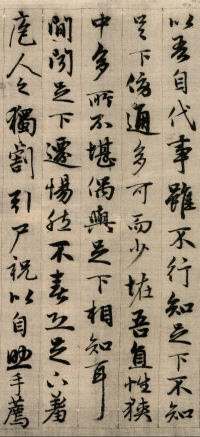 以吾自代事雖不行知足下不知
足下傍通多可而少怪吾直性狹
中多所不堪偶與足下相知耳
間聞足下遷惕然不喜恐足下羞
庖人之獨割引尸祝以自助手薦